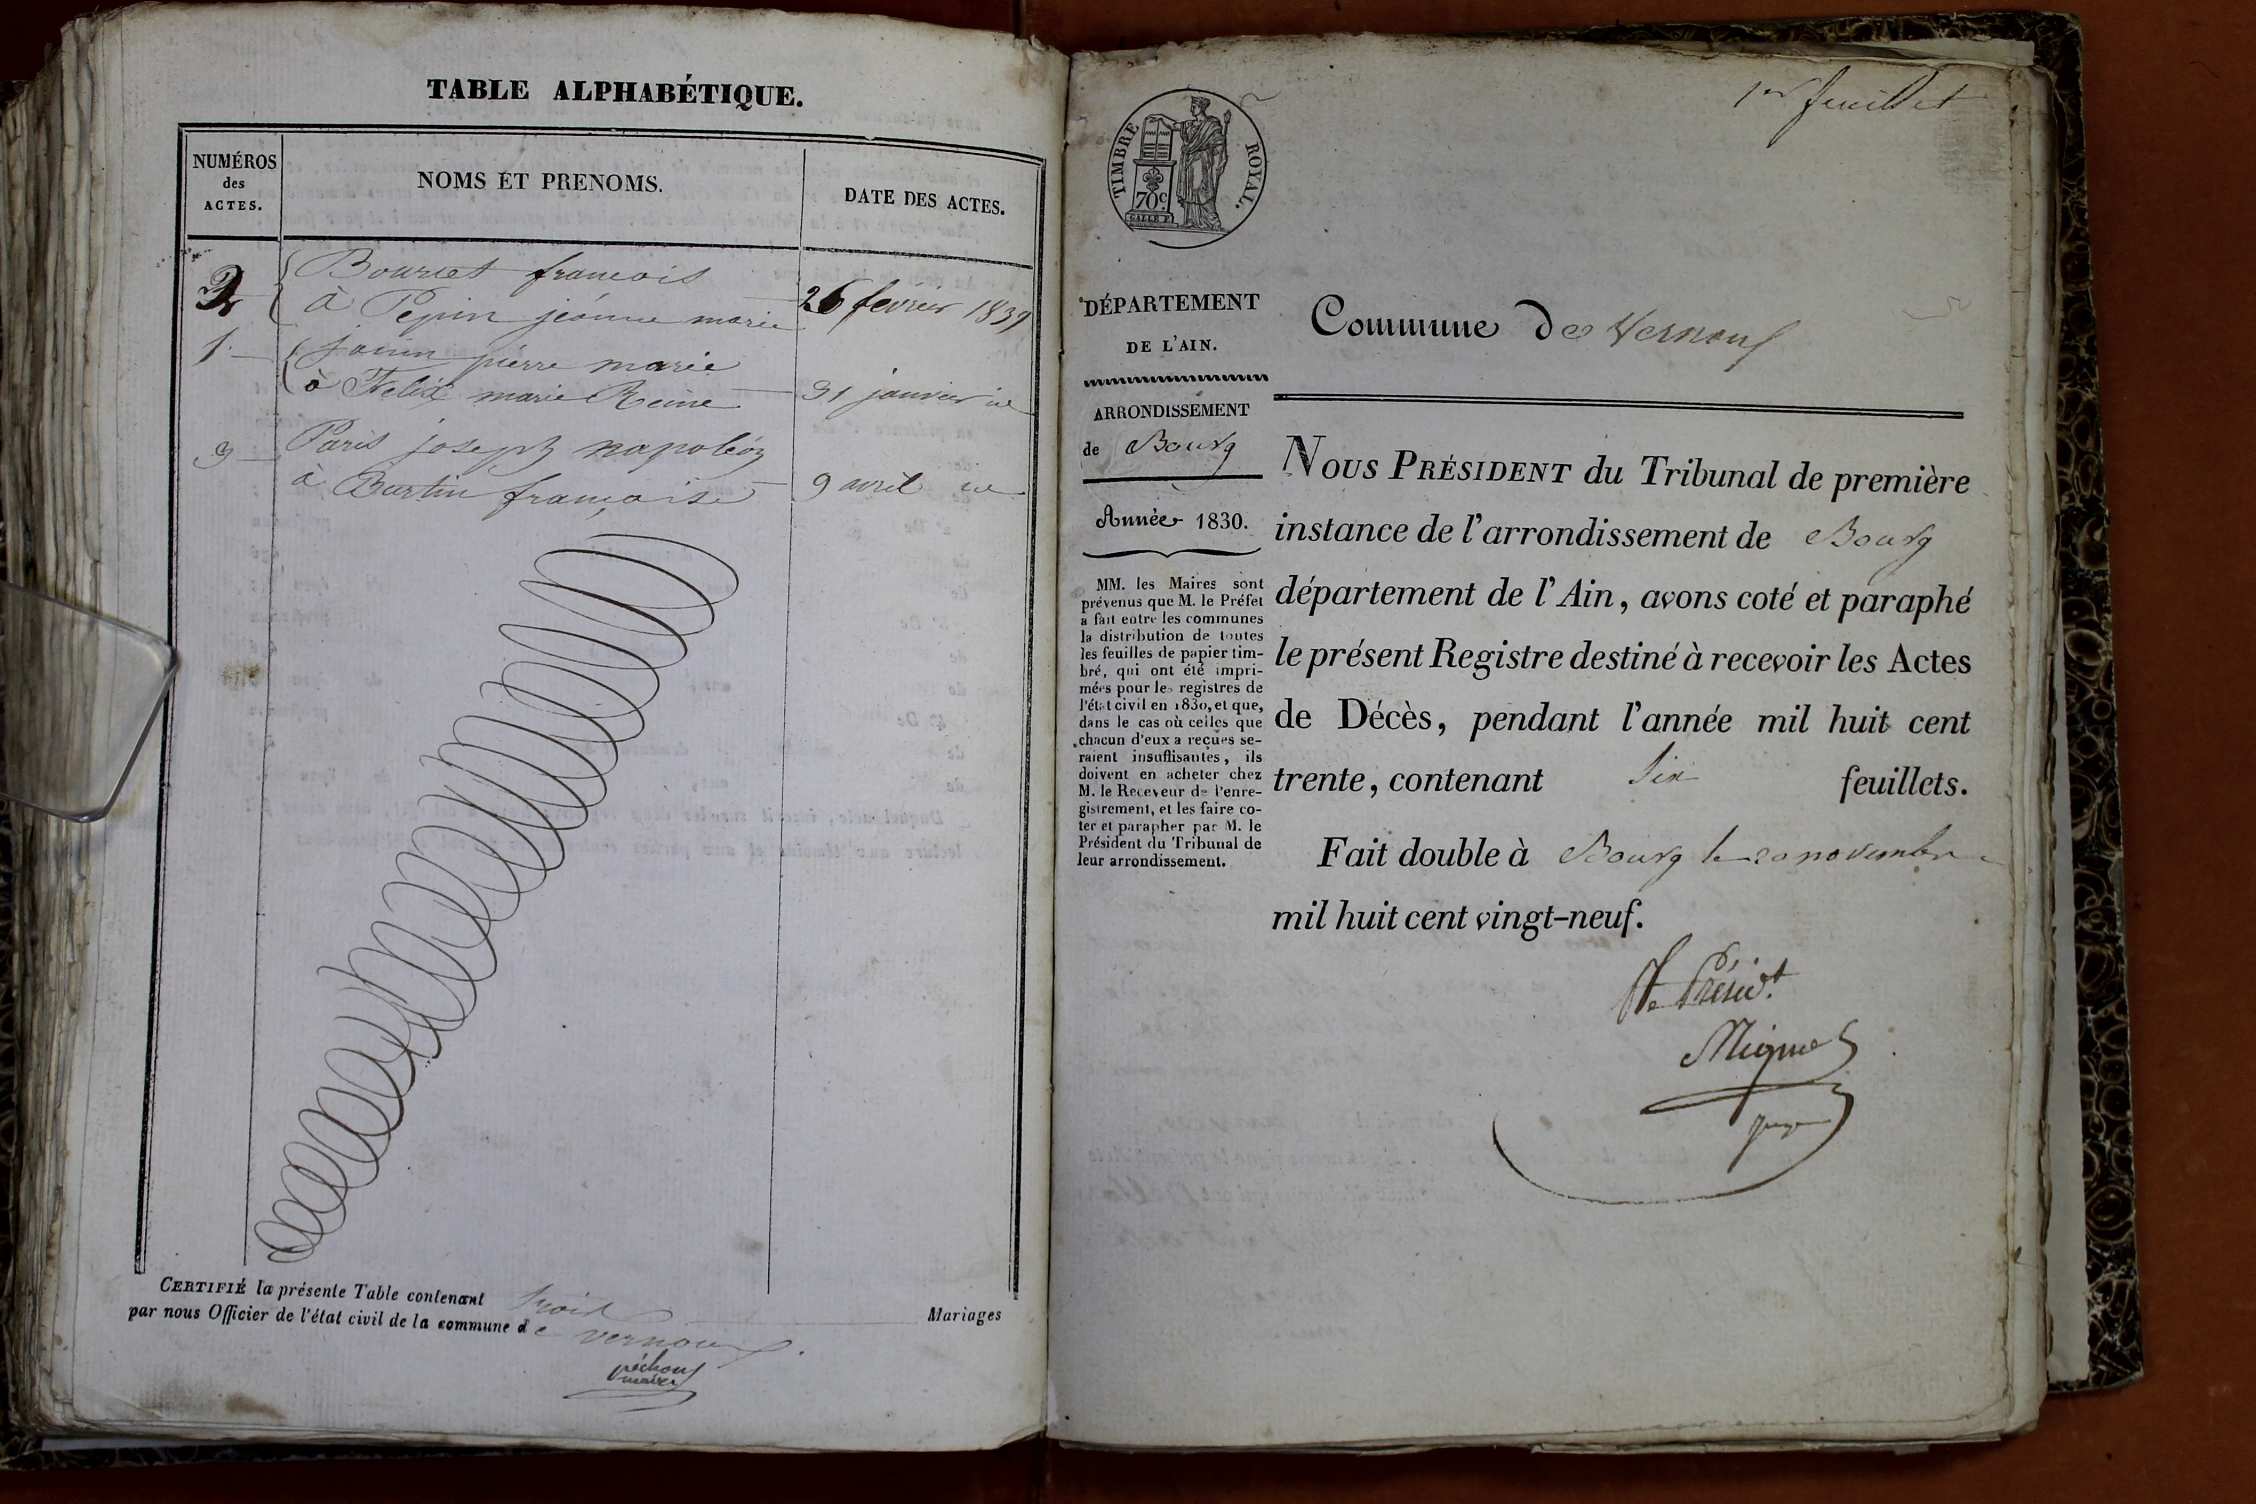 TABLE ALPHABÉTIQUE.
NUMÉROS
des
ACTES.
NOMS ET PRENOMS.
DATE DES ACTES.
2
francois
à Pepin jéanne marie
26 fevrier 1839
1
pierre marie
à Felix marie Reine
31 janvier
3
Paris joseph napoléon
à Burtin française
9 avril
CERTIFIÉ la présente Table contenant trois Mariages
par nous Officier de l'état civil de la commune de vernoux
maire
1er feuillet
TIMBRE ROYAL.
70c.
DÉPARTEMENT
DE L'AIN.
ARRONDISSEMENT
de Bourg
Année 1830.
MM. les Maires sont
prévenus que M. le Préfet
a fait entre les communes
la distribution de toutes
les feuilles de papier tim-
bré, qui ont été impri-
mées pour les registres de
l'état civil en 1830, et que,
dans le cas où celles que
chacun d'eux a reçues se-
raient insuffisantes, ils
doivent en acheter chez
M. le Receveur de l'enre-
gistrement, et les faire co-
ter et parapher par M. le
Président du Tribunal de
leur arrondissement.
Commune de Vernoux
NOUS PRÉSIDENT du Tribunal de première
instance de l'arrondissement de Bourg
département de l'Ain, avons coté et paraphé
le présent Registre destiné à recevoir les Actes
de Décès, pendant l'année mil huit cent
trente, contenant six feuillets.
Fait double à Bourg le 20 novembre
mil huit cent vingt-neuf.
Le Présidt